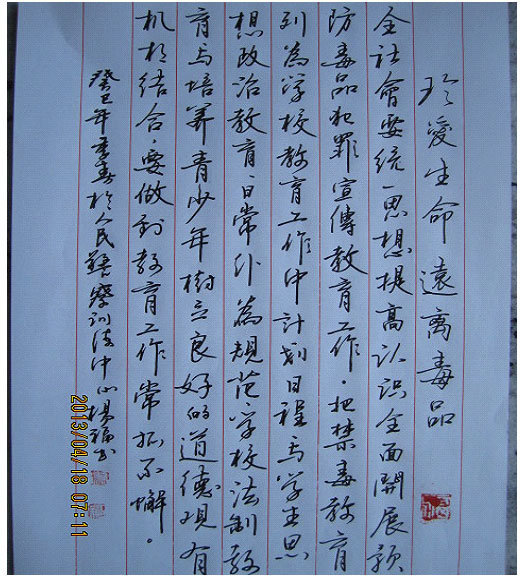 珍愛生命遠離毒品
全社會要統一思想提高认识全面開展预
防毒品犯罪宣傳教育工作。把禁毒教育
列為学校教育工作中計划日程与学生思
想政治教育、日常行為規范、学校法制教
育与培养青少年樹立良好的道德观有
机相结合,要做到教育工作常抓不懈。
癸巳年季春於人民警察训练中心楊福书
2013/04/18 07:11